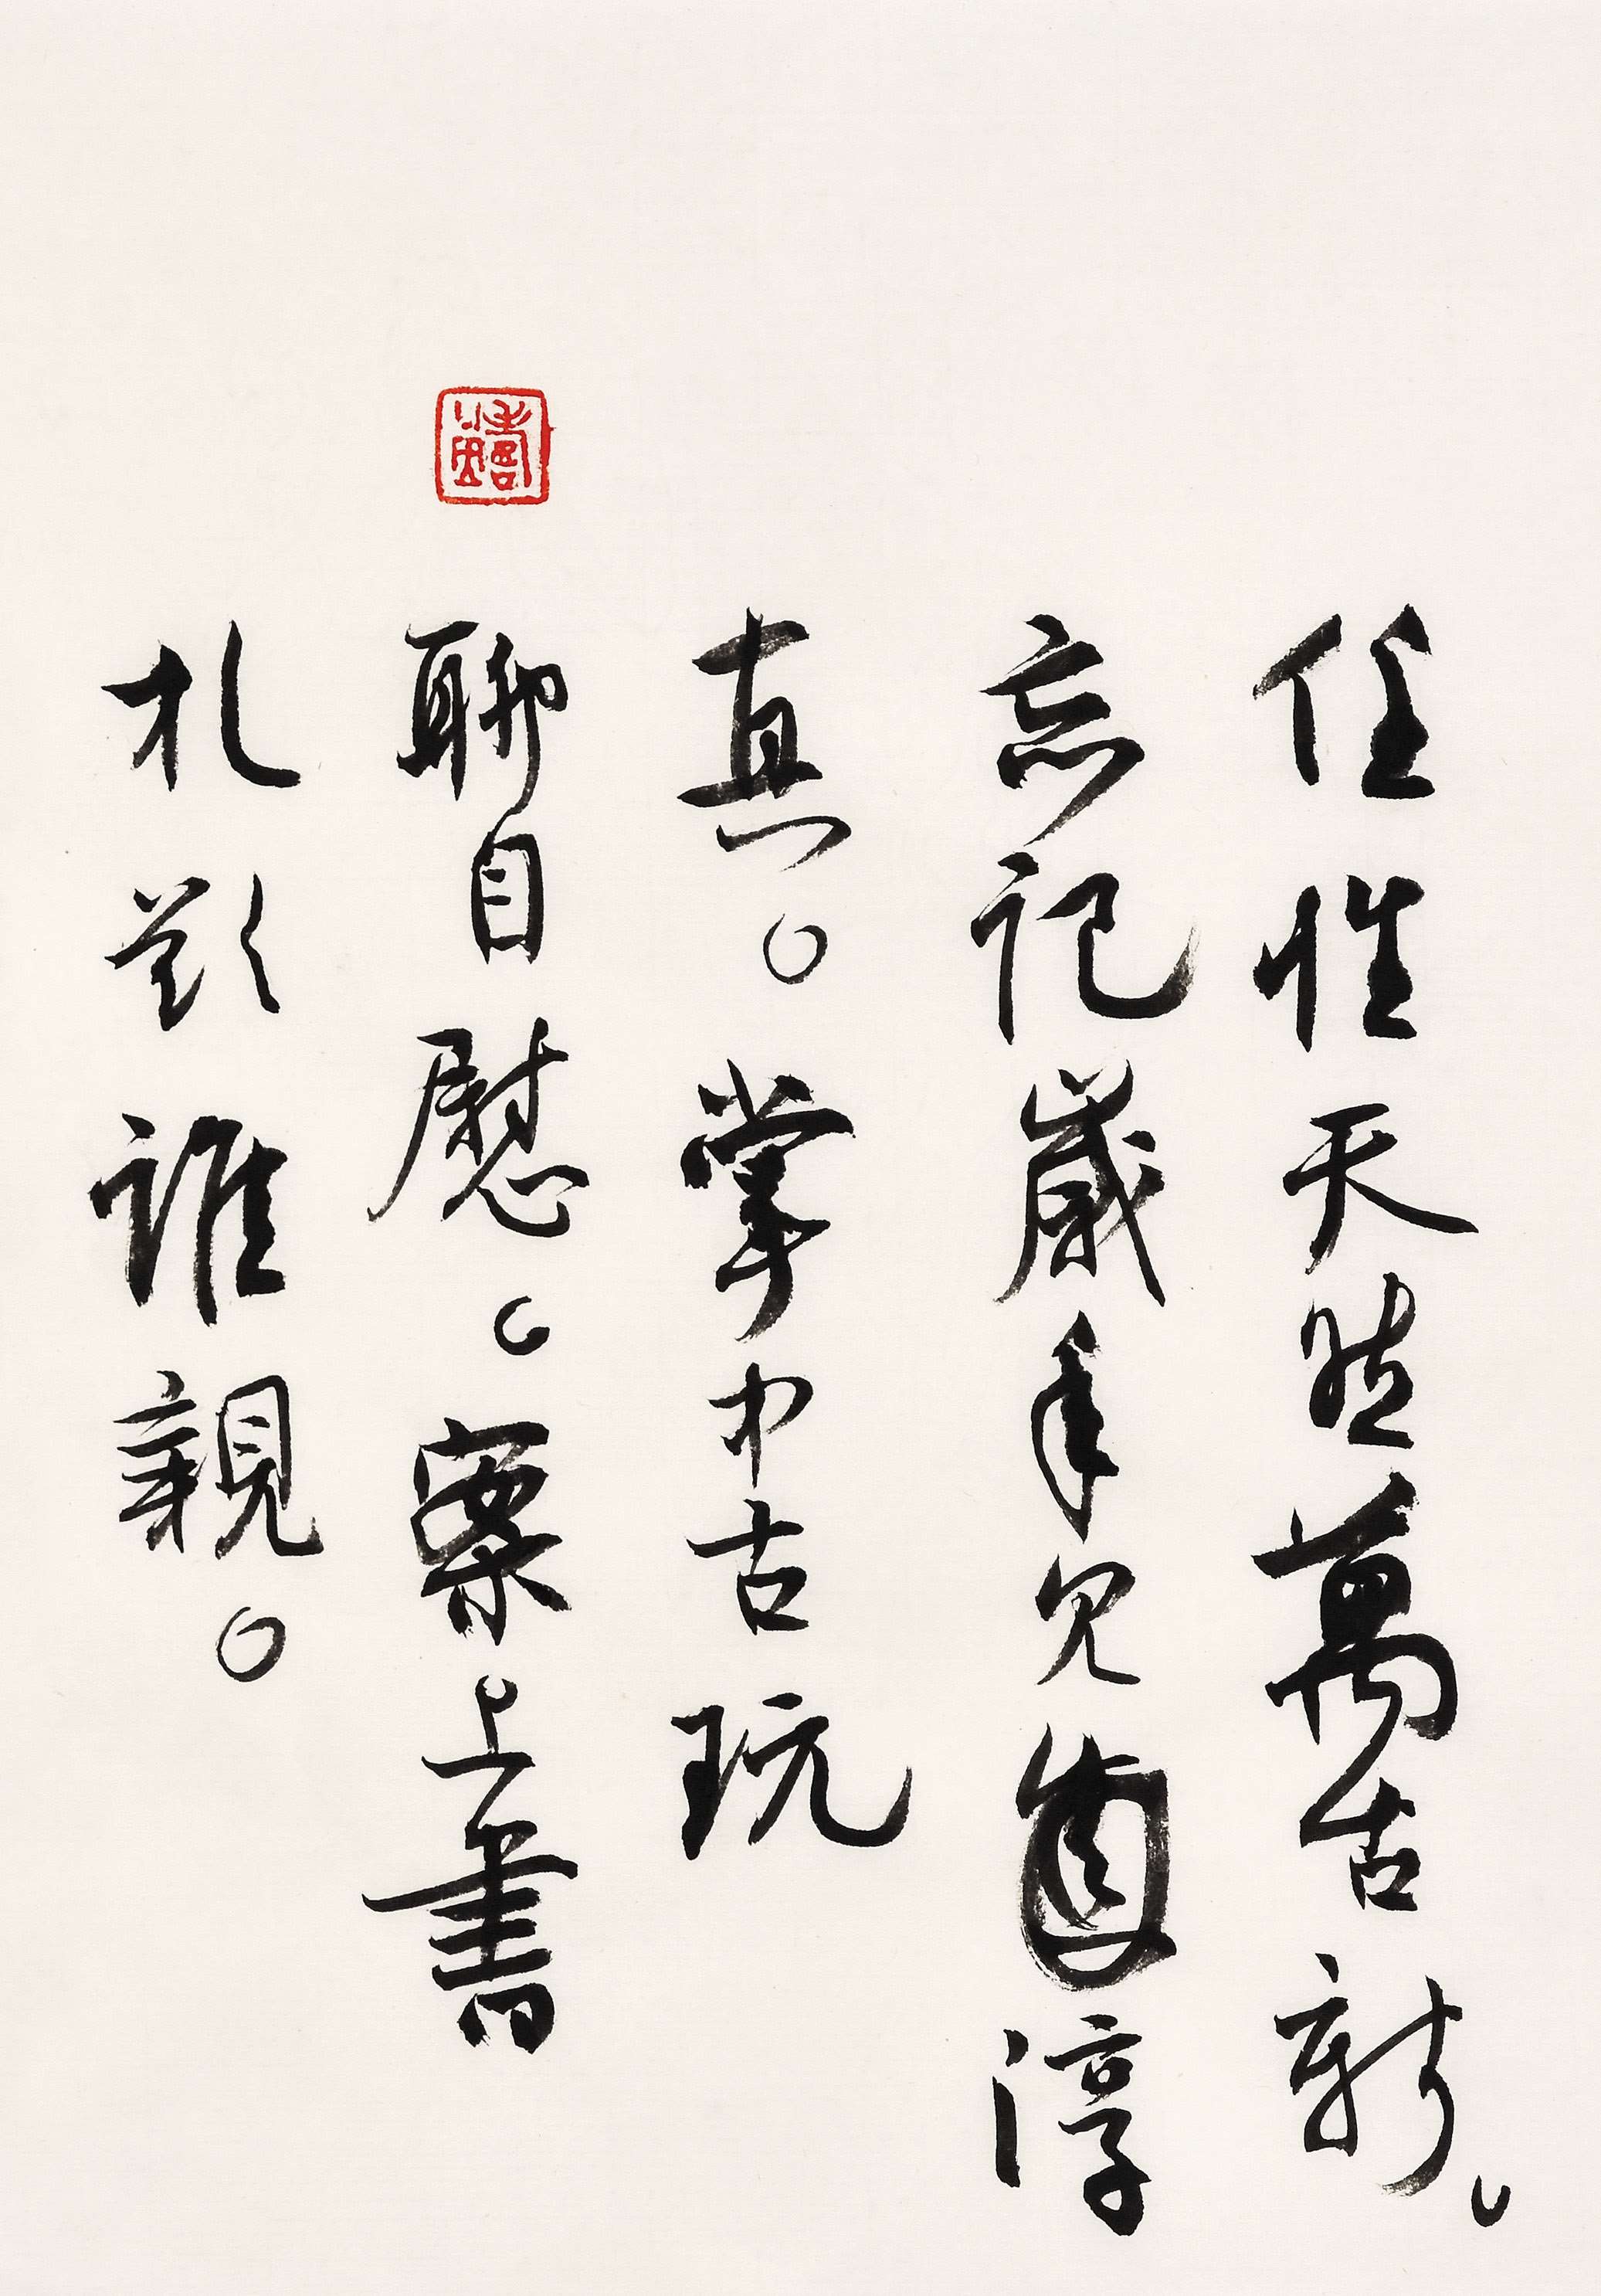 任性天然萬古新。
忘記歲年見淳
真。掌中古玩
聊自慰。案上書
札欲誰親。